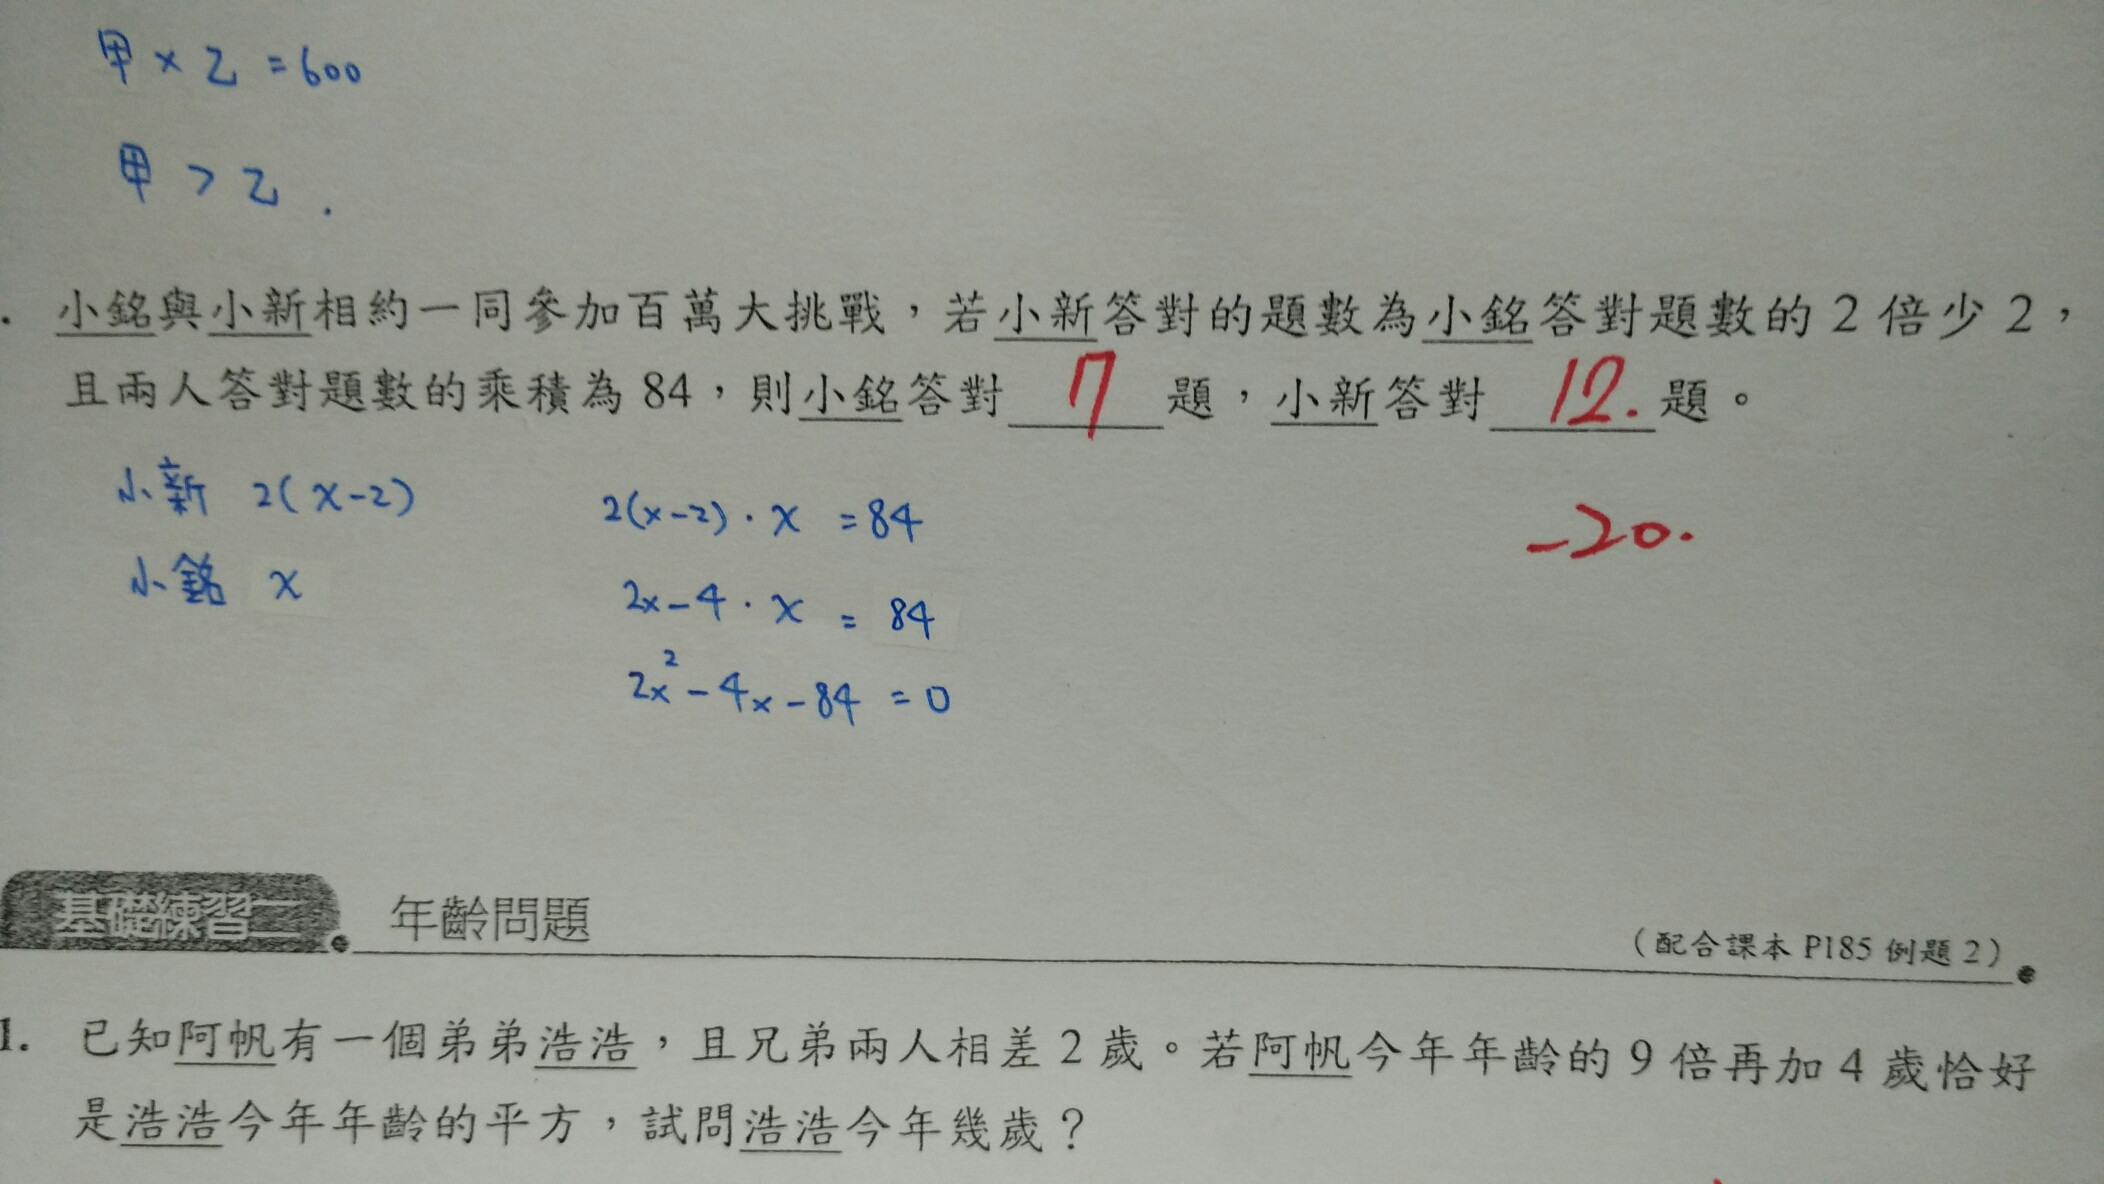 甲×乙=600
甲>乙.
. 小銘與小新相約一同參加百萬大挑戰，若小新答對的題數為小銘答對題數的2倍少2，
且兩人答對題數的乘積為84，則小銘答對 7 題，小新答對 12. 題。
小新 2(x-2)
小銘 x
2(x-2)·x =84
2x-4·x = 84
2x²-4x-84=0
-20.
基礎練習二 年齡問題
(配合課本 P185 例題2)
1. 已知阿帆有一個弟弟浩浩，且兄弟兩人相差2歲。若阿帆今年年齡的9倍再加4歲恰好
是浩浩今年年齡的平方，試問浩浩今年幾歲？